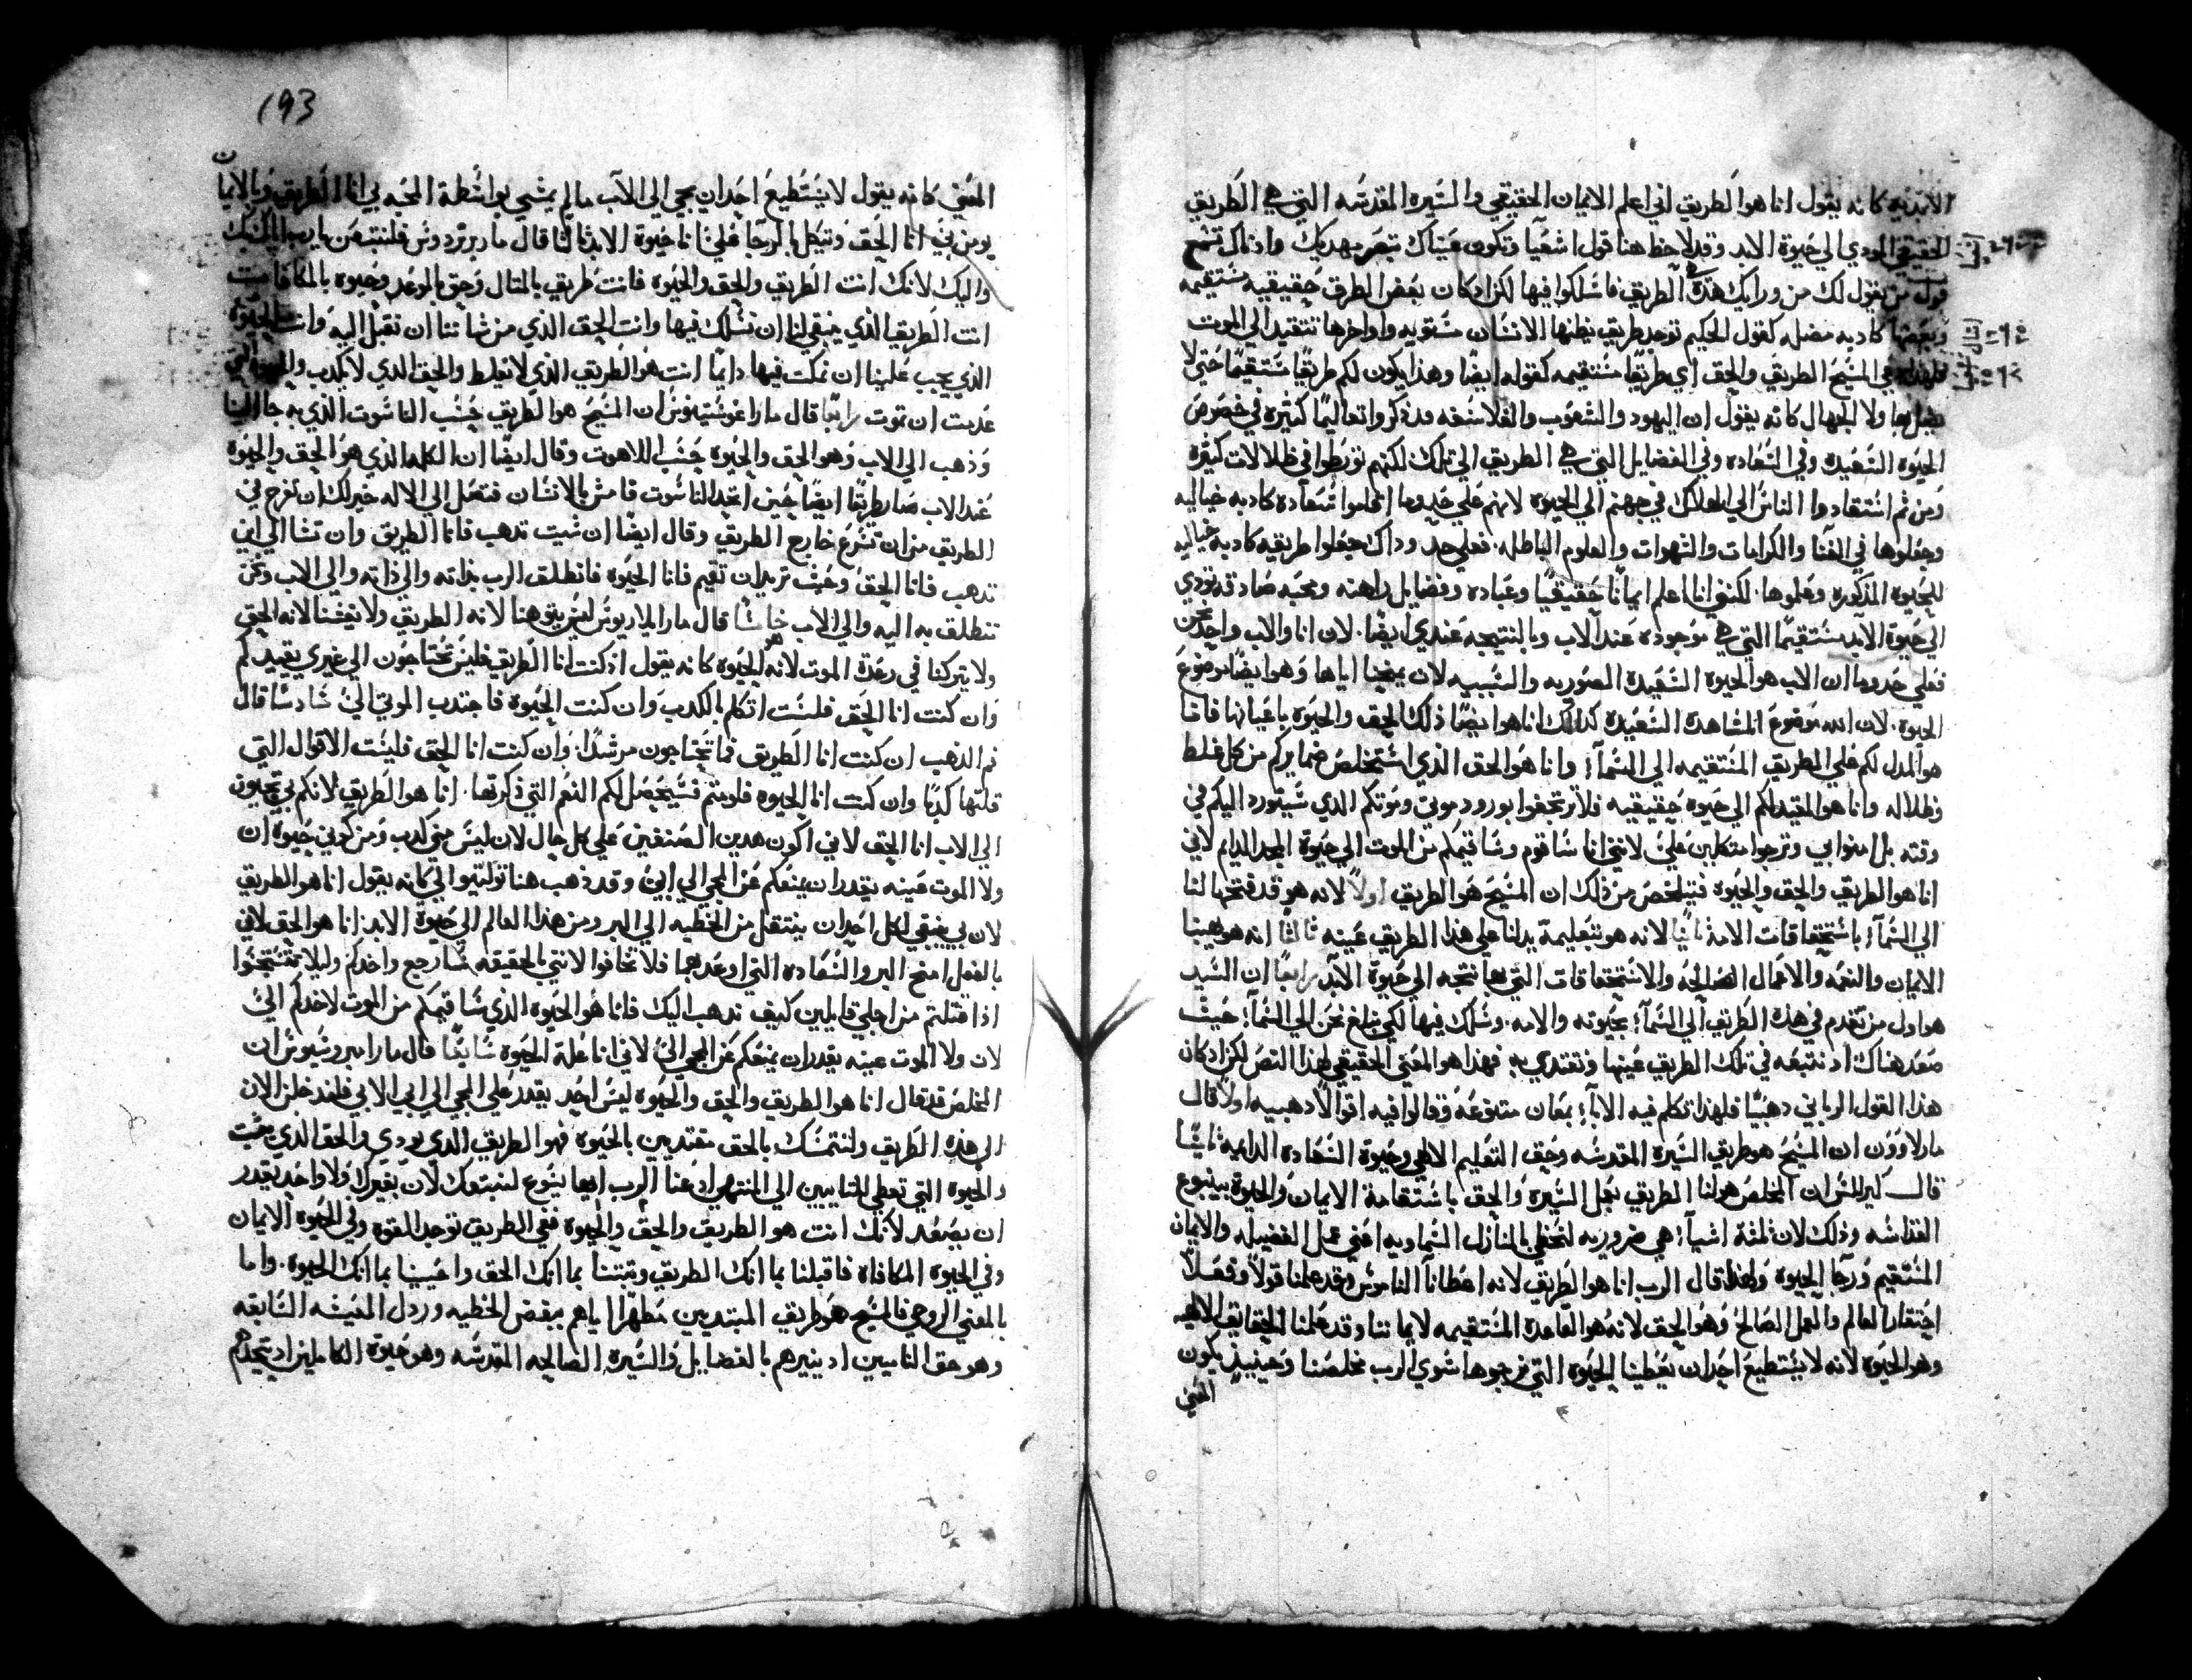 الابديه كانه يقول انا هو الطريق اني اعلم الايمان الحقيقي والسيره المقدسه التي هي الطريق
الحقيقي المودي الي حيوة الابد وقد لاحظ هنا قول اشعيا وتكون عيناك تبصر مهديك واذناك تسمع
قول من يقول لك من ورايك هذه هي الطريق فاسلكوا فيها لكن اذ كان بعض الطرق حقيقيه مستقيمه
وبعضها كادبه مضله كقول الحكيم توجد طريق يظنها الانسان مستويه واواخرها تنتقيد الي الموت
المسيح الطريق والحق اي طريقا مستقيمه كقوله ايضا وهذا يكون لكم طريقا مستقيما حتي لا
يضل بها ولا الجهال كانه يقول ان اليهود والشعوب والفلاسفه قد ذكروا تعاليما كثيره في خصوص
الحيوه السعيده وفي السعاده وفي الفضايل التي هي الطريق الي تلك لكنهم تورطوا في ظلالات كثيره
ومن ثم استقادوا الناس الي الهلاك في جهنم الي الحيوه لانهم علي حد وما اقاموا سعاده كادبه خياليه
وجعلوها في الغنا والكرامات والشهوات والعلوم الباطله فعلي حد وداك جعلوا طريقه كادبه خياليه
للحيوه المذكوره وعلموها لكنني انا اعلم ايمانا حقيقيا وعباده وفضايل راهنه ومحبه صادقه تودي
الي حيوة الابد مستقيما التي هي موجوده عند الاب وبالنتيجه عندي ايضا لان انا والاب واحد نحن
فعلي حد وما ان الاب هو الحيوه السعيده الصوريه والسببيه لان يمنحنا اياها وهو ايضا موضوع
الحيوه لان الله موضوع المشاهده السعيده كذلك انا هو ايضا ذلك الحق والحيوه باعيانها فانا
هو المدل لكم علي الطريق المستقيمه الي السماء وانا هو الحق الذي استخلص ضمايركم من كل غلط
وظلاله وانا هو المقيد لكم الي حيوه حقيقيه فلا تخفوا بورود موتي وموتكم الذي سيتورد اليكم في
وقته بل امنوا بي وترجوا متكلين علي لانني انا ساقوم وساقيمكم من الموت الي حيوة المجد الدايم لاني
انا هو الطريق والحق والحيوه فيتلخص من ذلك ان المسيح هو الطريق اولا لانه هو قد فتحها لنا
الي السماء باستحقاقات الامه ثانيا لانه هو بتعليمه يدلنا علي هذا الطريق عينه ثالثا انه هو يهبنا
الايمان والنعمه والاعمال الصالحه والاستحقاقات التي بها نتجه الي حيوة الابد رابعا ان السيد
هو اول من تقدم في هذه الطريق الي السماء بحيوته والامه وسلك فيها لكي نبلغ نحن الي السماء حيث
صعد هناك اذ نتبعه في تلك الطريق عينها ونقتدي به فهذا هو المعني الحقيقي لهذا النص لكن اذ كان
هذا القول الرباني دهبيا فلهذا تكلم فيه الاباء بمعان متنوعه وقالوا فيه اقوالا دهبيه اولا قال
مار لاوون ان المسيح هو طريق السيره المقدسه وحق التعليم الالهي وحيوة السعاده الدايمه ثانيا
قال كيرللس ان المخلص هو لنا الطريق بعمل السيره والحق باستقامة الايمان والحيوة بينبوع
القداسه وذلك لان ثلثة اشياء هي ضروريه لنحظي بالمنازل السماويه اعني عمل الفضيله والايمان
المستقيم ورجا الحيوه ولهذا قال الرب انا هو الطريق لانه اعطانا الناموس وقد علمنا قولا وفعلا
احتقار العالم والعمل الصالح وهو الحق لانه هو القاعده المستقيمه لايماننا وقد علمنا الحقايق الالهيه
وهو الحيوه لانه لا يستطيع احد ان يعطينا الحيوه التي نرجوها سوي الرب مخلصنا وحينيذ يكون
المعني
193
المعني كانه يقول لا يستطيع احد ان يجي الي الاب ما لم يمشي بواسطة المحبه بي انا الطريق وبالايمان
يومن بي انا الحق وتيكل بالرجا علي انا حيوة الابد ثالثا قال مار برنردوس فلنتبعن يارب اليك بك
واليك لانك انت الطريق والحق والحيوه فانت طريق بالمتال وحق بالوعد وحيوه بالمكافات
انت الطريق الذي ينبقي لنا ان نسلك فيها وانت الحق الذي من شاننا ان نقبل اليه وانت الحيوه
الذي يجب علينا ان نمكت فيها دايما انت هو الطريق الذي لا تغلط والحق الذي لا يكدب والحيوه التي
عدمت ان تموت رابعا قال مار اغوستينوس ان المسيح هو الطريق حسب الناسوت الذي به جا الينا
وذهب الي الاب وهو الحق والحيوه حسب اللاهوت وقال ايضا ان الكلمه الذي هو الحق والحيوه
عند الاب صار طريقا ايضا حين اتخد الناسوت فامش بالانسان فتصل الي الاله خير لك ان تعرج في
الطريق من ان تسرع خارج الطريق وقال ايضا ان شيت تدهب فانا الطريق وان تشا الي اين
تدهب فانا الحق وحيث تريد ان تقيم فانا الحيوه فانطلق الرب بذاته والي ذاته والي الاب ونحن
ننطلق به اليه والي الاب خامسا قال مار ايلاريوس ليس يتوهنا لانه الطريق ولا يغشنا لانه الحق
ولا يتركنا في رعدة الموت لانه هو الحيوه كانه يقول اذ كنت انا الطريق فليس تحتاجون الي غيري يقيدكم
وان كنت انا الحق فلست اتكلم بالكدب وان كنت الحيوه فاجتدب الموتي الي سادسا قال
فم الدهب ان كنت انا الطريق فما تحتاجون مرشدا وان كنت انا الحق فليست الاقوال التي
قلتها كدبا وان كنت انا الحيوه فلو متم فسيحصل لكم النعم التي ذكرتها انا هو الطريق لانكم بي تجيون
الي الاب انا الحق لاني اكون هدين الصنفين علي كل حال لان ليس مني كدب ومن كوني حيوه ان
ولا الموت عينه يقدر ان يمنعكم عن المجي الي ابي وقد ذهب هنا توليتو الي كانه يقول انا هو الطريق
لان بي ينبقي لكل احد ان ينتقل من الخطيه الي البر ومن هذا العالم الي حيوة الابد انا هو الحق لاني
بالفعل امنح البر والسعاده التي اوعد بهما فلا تخافوا لانني بالحقيقه سارجع واخدكم وليلا تتسجسوا
اذا قتلتم من اجلي قايلين كيف ندهب اليك فانا هو الحيوه الذي ساقيمكم من الموت لاخدكم الي
لان ولا الموت عينه يقدر ان يمنعكم عن المجي الي لاني انا علة الحيوه سابعا قال مار امبروسيوس ان
المخلص قد قال انا هو الطريق والحق والحيوه ليس احد يقدر علي المجي الي ابي الا بي فلندخلن الان
الي هذه الطريق ولنتمسك بالحق مقتديين بالحيوه فهو الطريق الدي يودي والحق الدي يتبت
والحيوه التي تعطي للتايبين الي المنتهي ادعنا الرب ايها يسوع لنتبعك لان بغيرك ولا واحد يقدر
ان يصعد لانك انت هو الطريق والحق والحيوه ففي الطريق توجد القوه وفي الحيوه الايمان
وفي الحيوه المكافاه فاقبلنا بما انك الطريق وتبتنا بما انك الحق واحيينا بما انك الحيوه واما
بالمعني الروحي فالمسيح هو طريق المبتديين مطهرا اياهم ببغض الخطيه وردل المعيشه السابقه
وهو حق الناميين اد ينيرهم بالفضايل والسيره الصالحه المقدسه وهو حيوة الكاملين اد يتحدهم